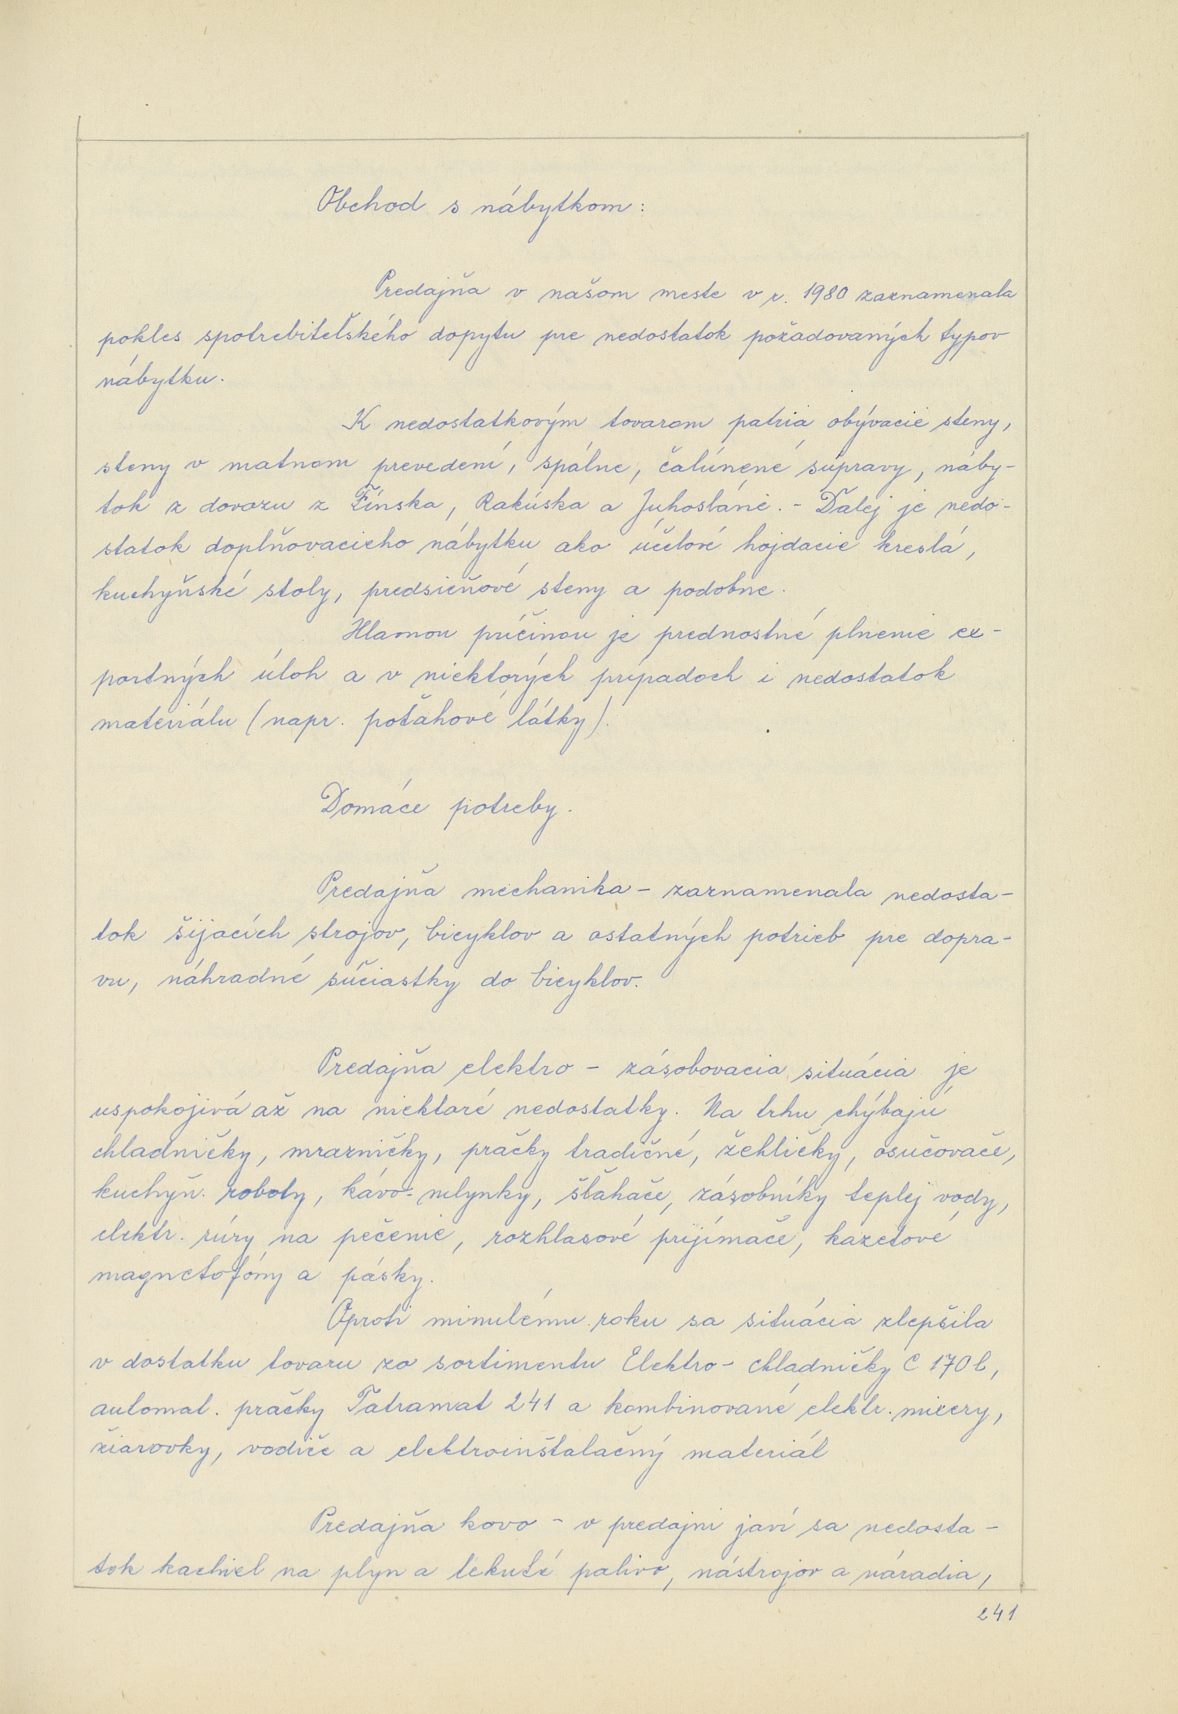 Obchod s nábytkom:
Predajňa v našom meste v r. 1980 zaznamenala
pokles spotrebiteľského dopytu pre nedostatok požadovaných typov
nábytku.
K nedostatkovým tovarom patria obývacie steny,
steny v matnom prevedení, spálne, čalúnené súpravy, náby-
tok z dovozu z Fínska, Rakúska a Juhoslánie. - Ďalej je nedo-
statok doplňovacieho nábytku ako účelové hojdacie kreslá,
kuchyňské stoly, predsieňové steny a podobne.
Hlavnou príčinou je prednostné plnenie ex-
portných úloh a v niektorých prípadoch i nedostatok
materiálu (napr. poťahové látky).
Domáce potreby.
Predajňa mechanika - zaznamenala nedosta-
tok šijacích strojov, bicyklov a ostatných potrieb pre dopra-
vu, náhradné súčiastky do bicyklov.
Predajňa elektro - zásobovacia situácia je
uspokojivá až na niektoré nedostatky. Na trhu chýbajú
chladničky, mrazničky, pračky tradičné, žehličky, osučovače,
kuchyň. roboty, kávo-mlynky, šľahače, zásobníky teplej vody,
elektr. rúry na pečenie, rozhlasové prijímače, kazetové
magnetofóny a pásky.
Oproti minulému roku sa situácia zlepšila
v dostatku tovaru zo sortimentu Elektro - chladničky C 170 l,
automat. pračky Tatramat 241 a kombinované elektr. mixery,
žiarovky, vodiče a elektroinštalačný materiál
Predajňa kovo - v predajni javí sa nedosta-
tok kachiel na plyn a tekuté palivo, nástrojov a náradia,
241